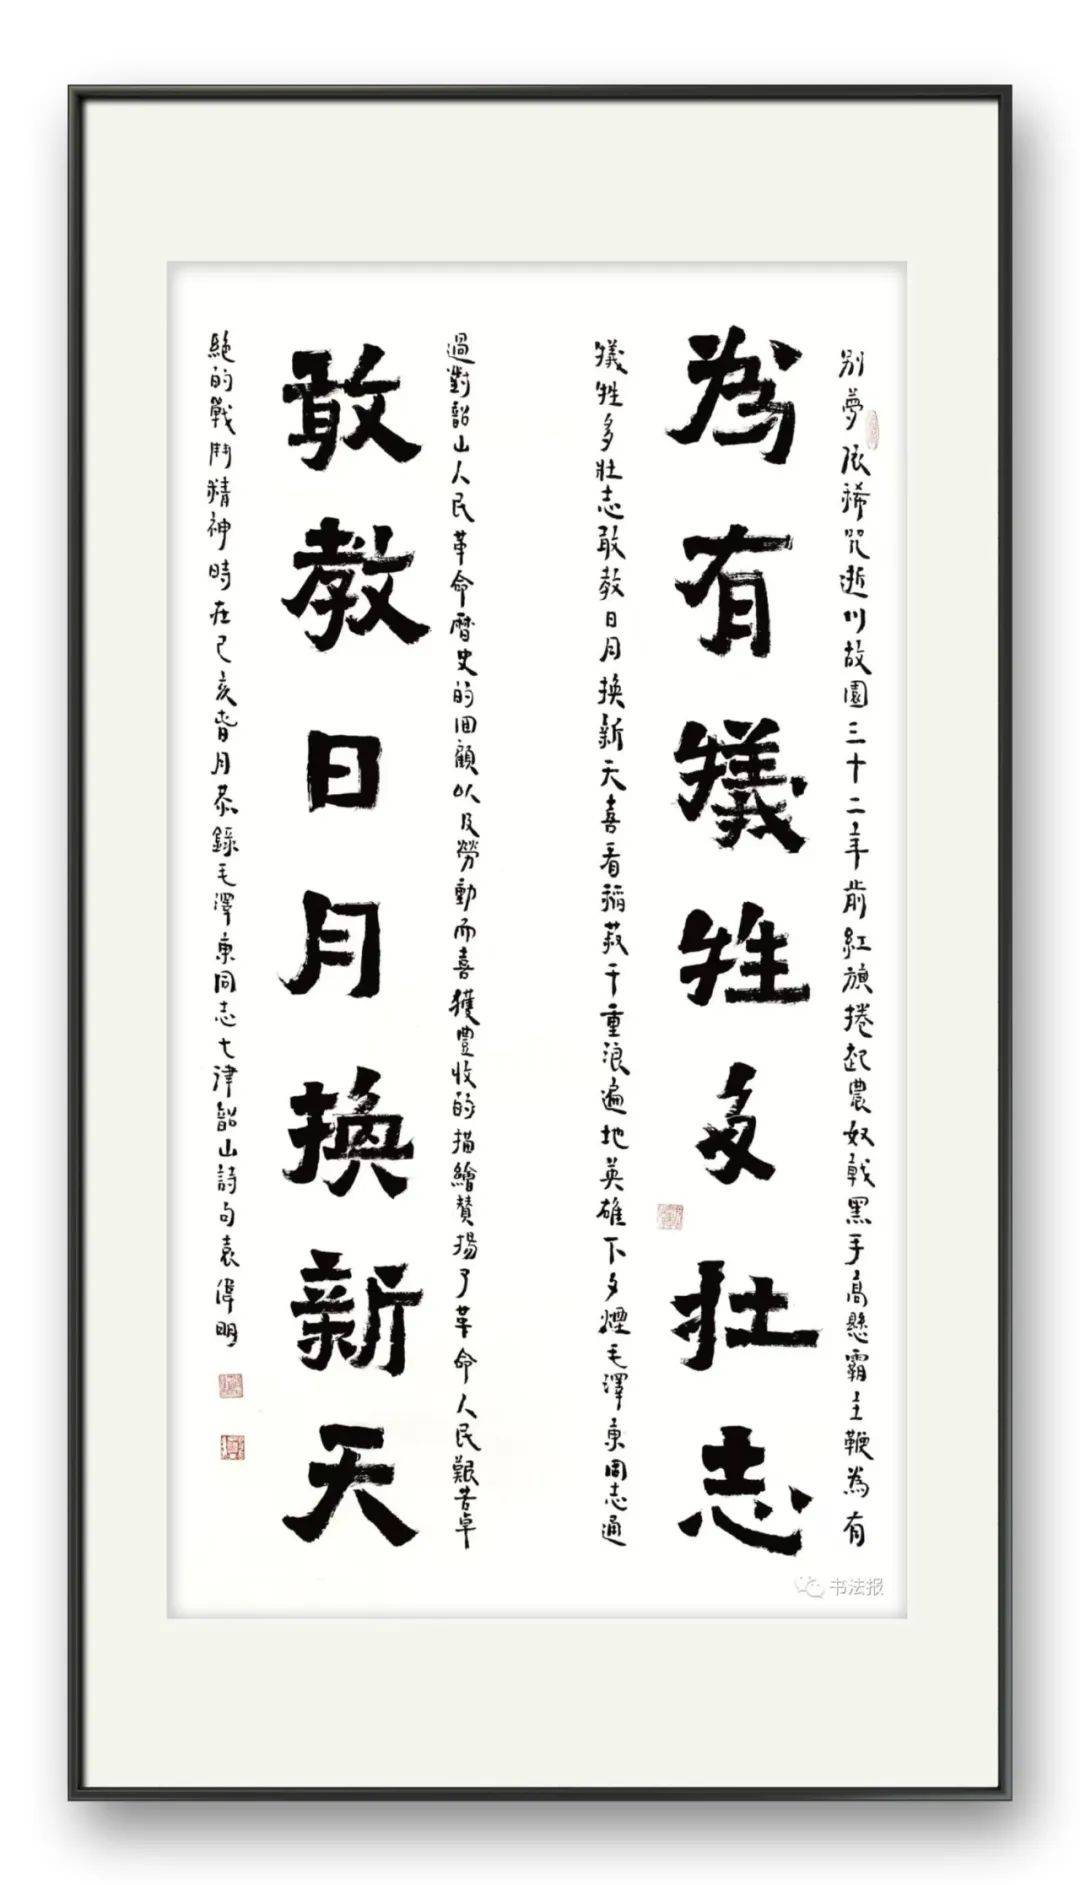 别夢依稀咒逝川故園三十二年前紅旗捲起農奴戟黑手高懸霸主鞭為有
為有犧牲多壯志
犧牲多壯志敢教日月換新天喜看稻菽千重浪遍地英雄下夕煙毛澤東同志通
過對韶山人民革命曆史的回顧以及勞動而喜獲豐收的描繪贊揚了革命人民艱苦卓
敢教日月換新天
絕的戰鬥精神時在己亥春月恭錄毛澤東同志七律韶山詩句袁偉明
书法报